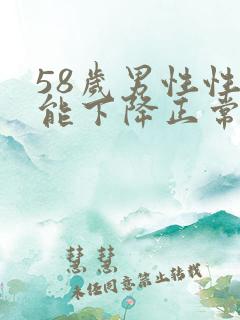 58歲男性性
能下降正常
慧慧
未经同意禁止转载